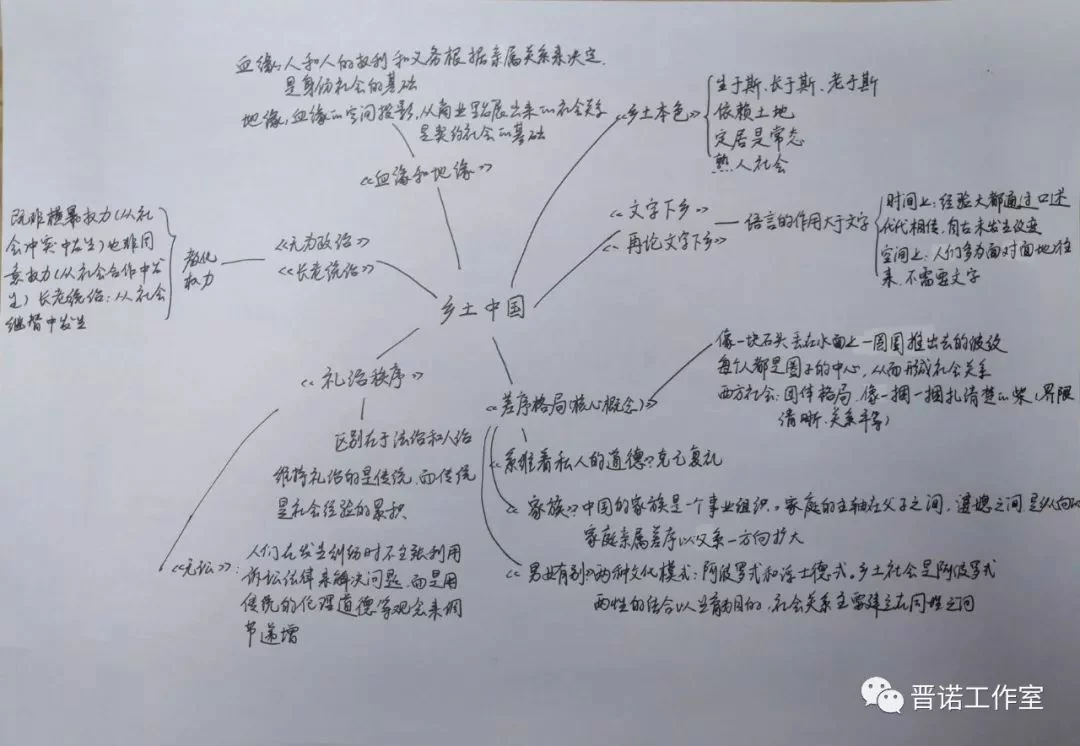 血缘,人和人的权利和义务根据亲属关系来决定.
是身份社会的基础
地缘,血缘的空间投影,从商业里发展出来的社会关系
是契约社会的基础
《血缘和地缘》
《乡土本色》
生于斯、长于斯、老于斯
依赖土地
定居是常态
熟人社会
《文字下乡》
《再论文字下乡》
语言的作用大于文字
时间上:经验大都通过口述
代代相传,自古未发生改变
空间上:人们多为面对面地往
来,不需要文字
《无为政治》
《长老统治》
教化
权力
既非横暴权力(从社
会冲突中发生)也非同
意权力(从社会合作中发
生)长老统治:从社会
继替中发生
乡土中国
《礼治秩序》
区别在于法治和人治
维持礼治的是传统,而传统
是社会经验的累积
《无讼》:
人们在发生纠纷时不主张利用
诉讼法律来解决问题,而是用
传统的伦理道德等观念来调
节
《差序格局(核心概念)》
像一块石头丢在水面上一圈圈推出去的波纹
每个人都是圈子的中心,从而形成社会关系
西方社会:团体格局,像一捆一捆扎清楚的柴(界限
清晰、关系平等)
《系维着私人的道德》克己复礼
《家族》中国的家族是一个事业组织。家庭的主轴在父子之间,婆媳之间是纵向的
家庭亲属差序以父系一方向扩大
《男女有别》两种文化模式:阿波罗式和浮士德式。乡土社会是阿波罗式
两性的结合以生育为目的,社会关系主要建立在同性之间
晋诺工作室